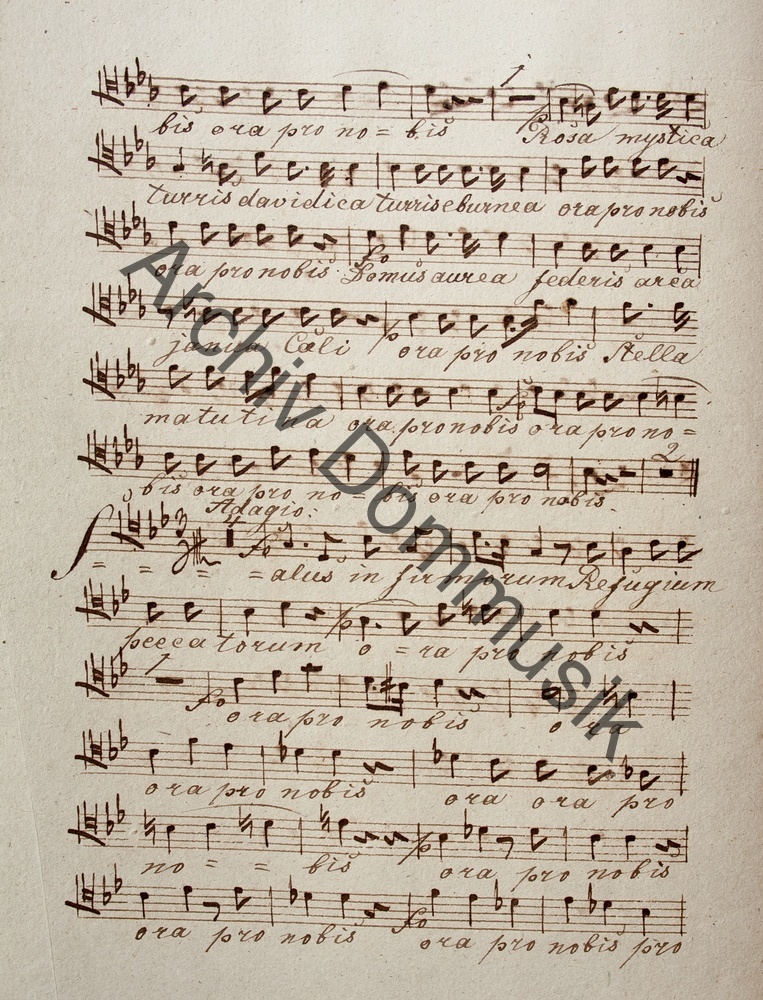 1
bis ora pro no = bis p Rosa mystica
turris davidica turris eburnea ora pro nobis
fo
ora pro nobis Domus aurea federis arca
p
janua Cæli ora pro nobis Stella
fo
matutina ora pro nobis ora pro no =
2
bis ora pro no = bis ora pro nobis.
Adagio:
3 4 fo
S = = = = alus in firmorum Refugium
p
peccatorum o = ra pro nobis
1
fo
ora pro nobis ora
ora pro nobis ora ora pro
p
no = = bis ora pro nobis
fo
ora pro nobis ora pro nobis pro
Archiv Dommusik